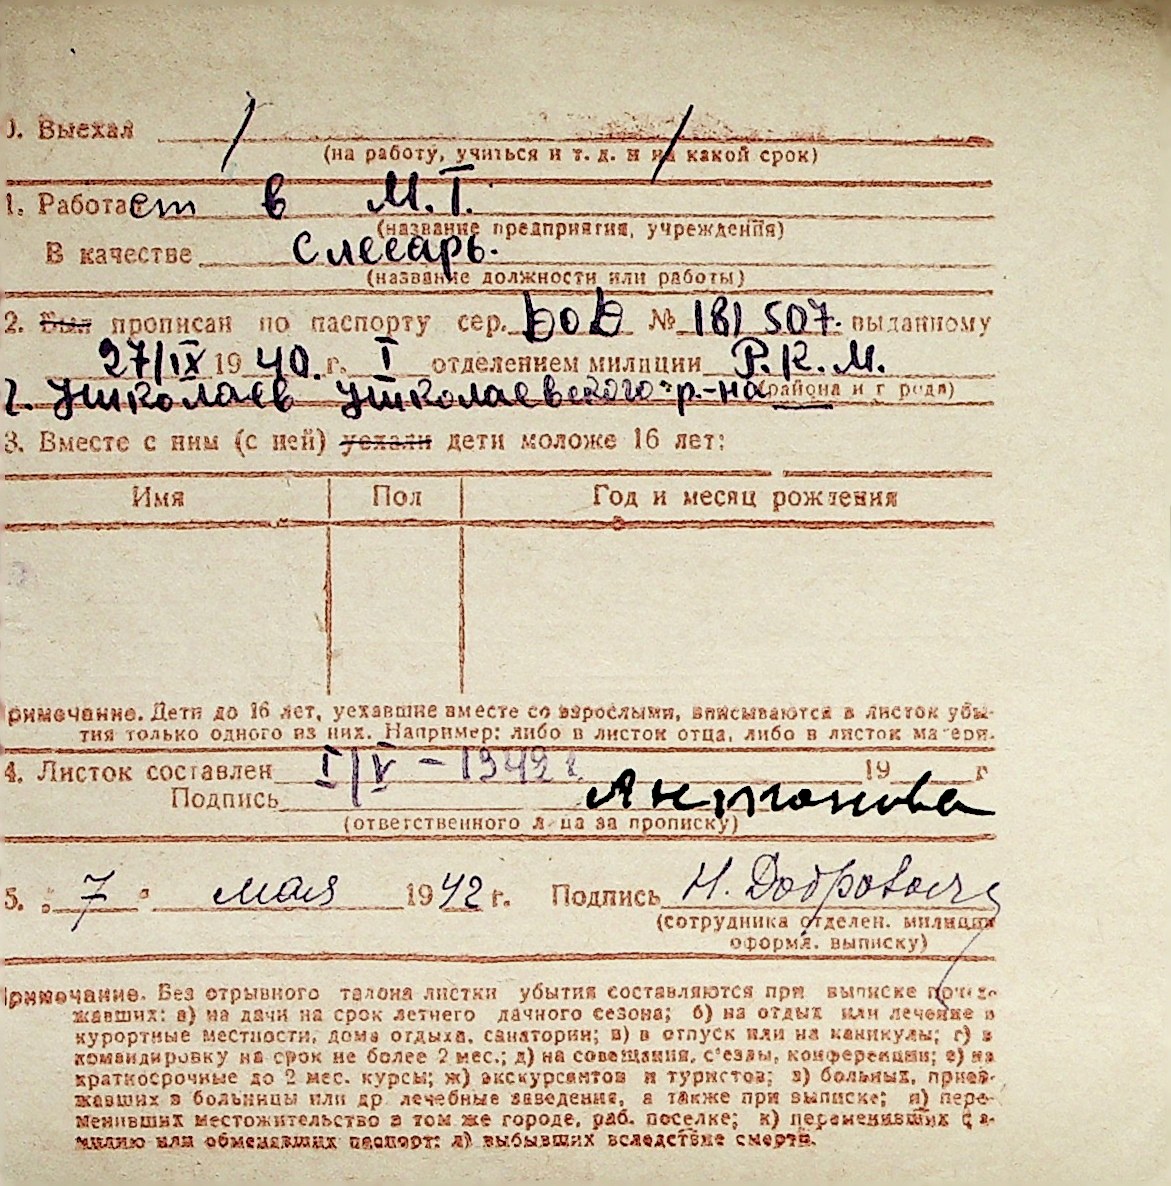 0. Выехал
(на работу, учиться и т. д. и на какой срок)
1. Работает в М.Т.
(название предприятия, учреждения)
В качестве Слесарь.
(название должности или работы)
2. Был прописан по паспорту сер. № 181 507. выданному
27/IX 1940. г. I отделением милиции Р.К.М.
г. Николаев Николаевского р-на (района и города)
3. Вместе с ним (с ней) уехали дети моложе 16 лет:
Имя Пол Год и месяц рождения
римечание. Дети до 16 лет, уехавшие вместе со взрослыми, вписываются в листок убы-
тия только одного из них. Например: либо в листок отца, либо в листок матери.
4. Листок составлен I/V - 1942 г 19 г
Подпись Антонова
(ответственного лица за прописку)
5. " 7 " мая 1942 г. Подпись Н.
(сотрудника отделен. милиции
оформл. выписку)
Примечание. Без отрывного талона листки убытия составляются при выписке
жавших: а) на дачи на срок летнего дачного сезона; б) на отдых или лечение в
курортные местности, дома отдыха, санатории; в) в отпуск или на каникулы; г) в
командировку на срок не более 2 мес.; д) на совещания, с'езды, конференции; е) на
краткосрочные до 2 мес. курсы; ж) экскурсантов и туристов; з) больных, приез-
жавших в больницы или др лечебные заведения, а также при выписке; и) пере-
менивших местожительство в том же городе, раб. поселке; к) переменивших фа-
милию или обменявших паспорт: л) выбывших вследствие смерти.